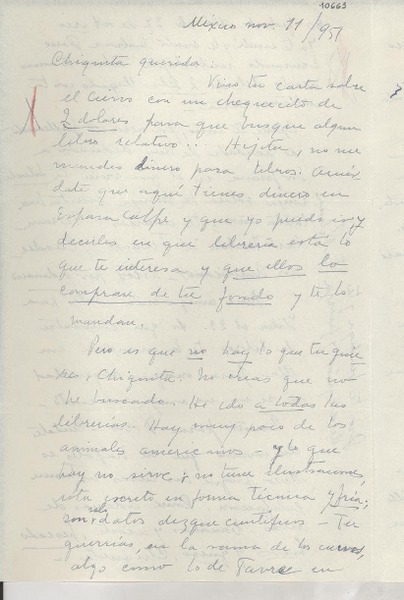 10663
México nov. 11/951
Chiquita querida
Vino tu carta sobre
el Ciervo con un chequecito de
2 dolares para que busque algun
libro relativo... Hijita, no me
mandes dinero para libros. Acuér
date que aquí tienes dinero en
Espasa Calpe y que yo puedo ir y
decirles en que librería está lo
que te interesa y que ellos lo
compren de tu fondo y te lo
mandan.
Pero es que no hay lo que tu quie
res, Chiquita. No creas que no
he buscado. He ido a todas las
librerías. Hay muy poco de los
animales americanos - y lo que
hay no sirve; no tiene ilustraciones,
está escrito en forma técnica y fría;
son solo datos dizque científicos - Tu
querrías, en la rama de los ciervos,
algo como lo de Favre en